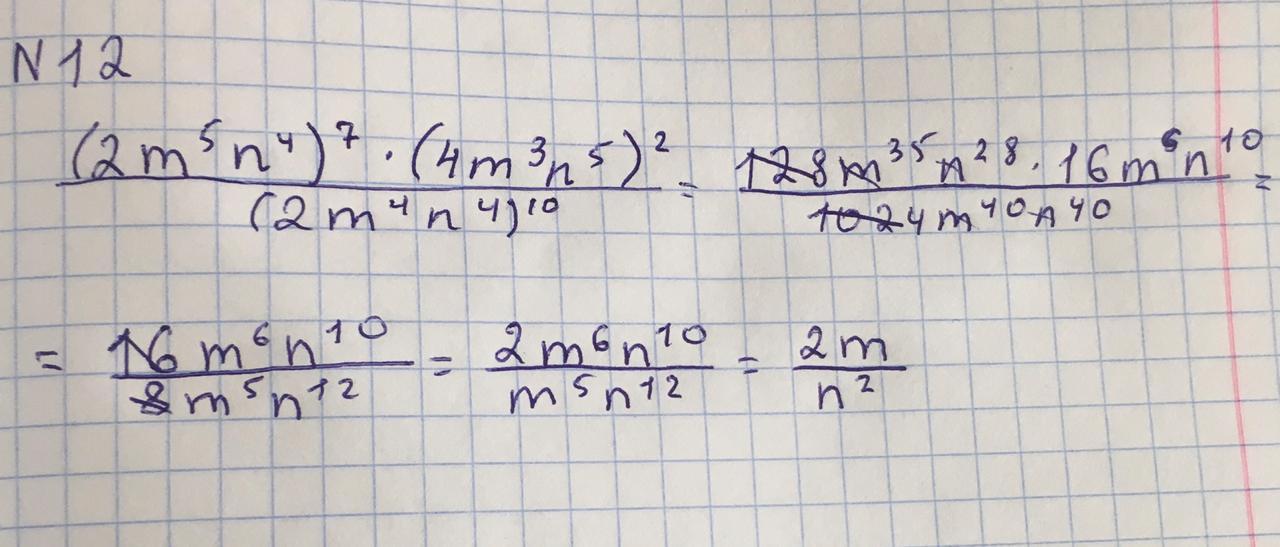 N12
(2m⁵n⁴)⁷ · (4m³n⁵)² / (2m⁴n⁴)¹⁰ = 128m³⁵n²⁸ · 16m⁶n¹⁰ / 1024m⁴⁰n⁴⁰ =
= 16m⁶n¹⁰ / 8m⁵n¹² = 2m⁶n¹⁰ / m⁵n¹² = 2m / n²